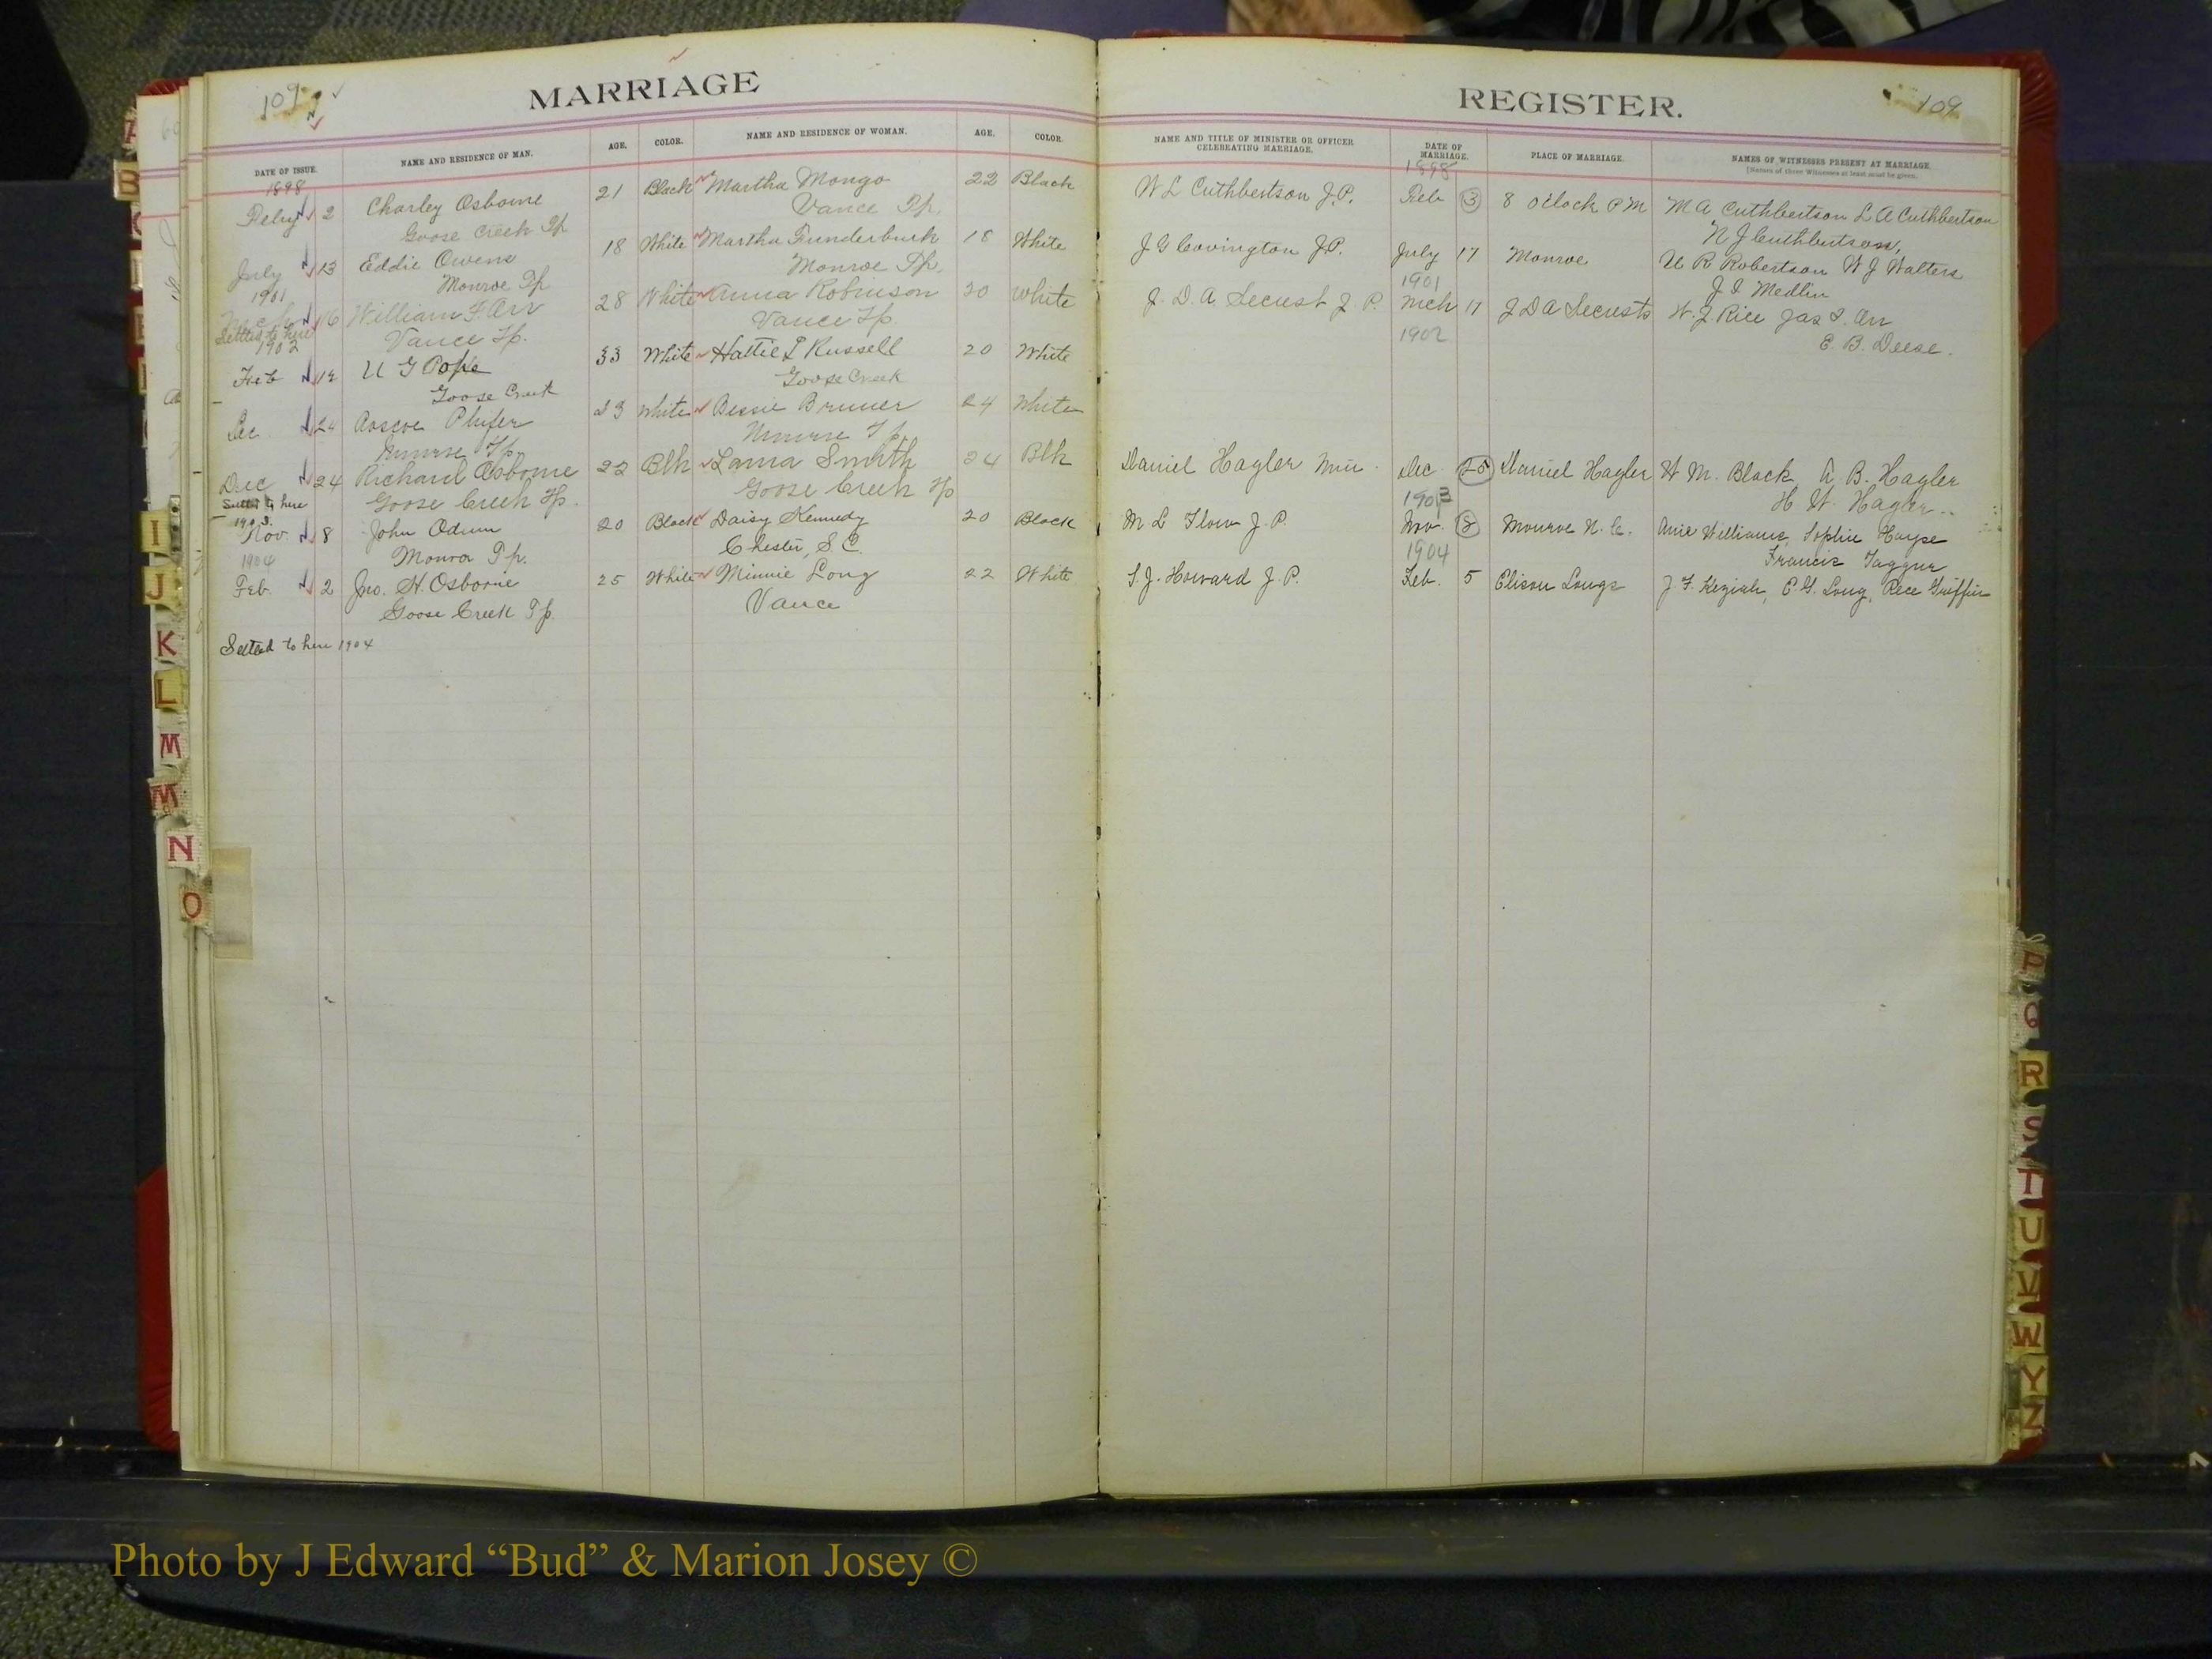 109
MARRIAGE
REGISTER.
109
DATE OF ISSUE.
NAME AND RESIDENCE OF MAN.
AGE.
COLOR.
NAME AND RESIDENCE OF WOMAN.
AGE.
COLOR.
NAME AND TITLE OF MINISTER OR OFFICER
CELEBRATING MARRIAGE.
DATE OF
MARRIAGE.
PLACE OF MARRIAGE.
NAMES OF WITNESSES PRESENT AT MARRIAGE.
[Names of three Witnesses at least must be given.
1898
1898
Feby 2 Charley Osborne 21 Black Martha Mongo 22 Black W L Cuthbertson J.P. Feb 3 8 o'clock P M M A Cuthbertson L A Cuthbertson
Goose Creek Tp Vance Tp. N J Cuthbertson
July 13 Eddie Owens 18 White Martha Funderburk 18 White J G Covington J.P. July 17 Monroe U R Robertson W J Walters
Monroe Tp Monroe Tp. Medlin
1901 1901
Mch 16 William F. Orr 28 White Anna Robinson 20 White J. D. A. Secrest J. P. Mch 17 J D A Secrests W. J. Rice Jas Orr
Settled to here Vance Tp. Vance Tp E. B. Deese.
1902 1902
Feb U G Pope 33 White Hattie Russell 20 White
Goose Creek Goose Creek
Dec 24 Roscoe Phifer 23 White Bessie Bruner 24 White
Monroe Tp. Monroe Tp.
Dec 24 Richard Osborne 22 Blk Smith 24 Blk Daniel Hagler Min. Dec 25 Daniel Hagler W M. Black, A. B. Hagler
Settled to here Goose Creek Tp. Goose Creek Tp H. W. Hagler
1903. 1903
Nov. 8 John Odum 20 Black Daisy Kennedy 20 Black M L Flow J. P. Nov. 8 Monroe N. C. Williams, Sophia
Monroe Tp. Chester, S. C. Francis
1904 1904
Feb. 2 Jno. H. Osborne 25 White Minnie Long 22 White S. J. Howard J. P. Feb. 5 Elison Longs J. F. Keziah, E. G. Long, Rece Griffin
Goose Creek Tp. Vance
Settled to here 1904
I
J
K
L
M
M
N
O
P
Q
R
S
T
U
V
W
Y
Z
Photo by J Edward “Bud” & Marion Josey ©